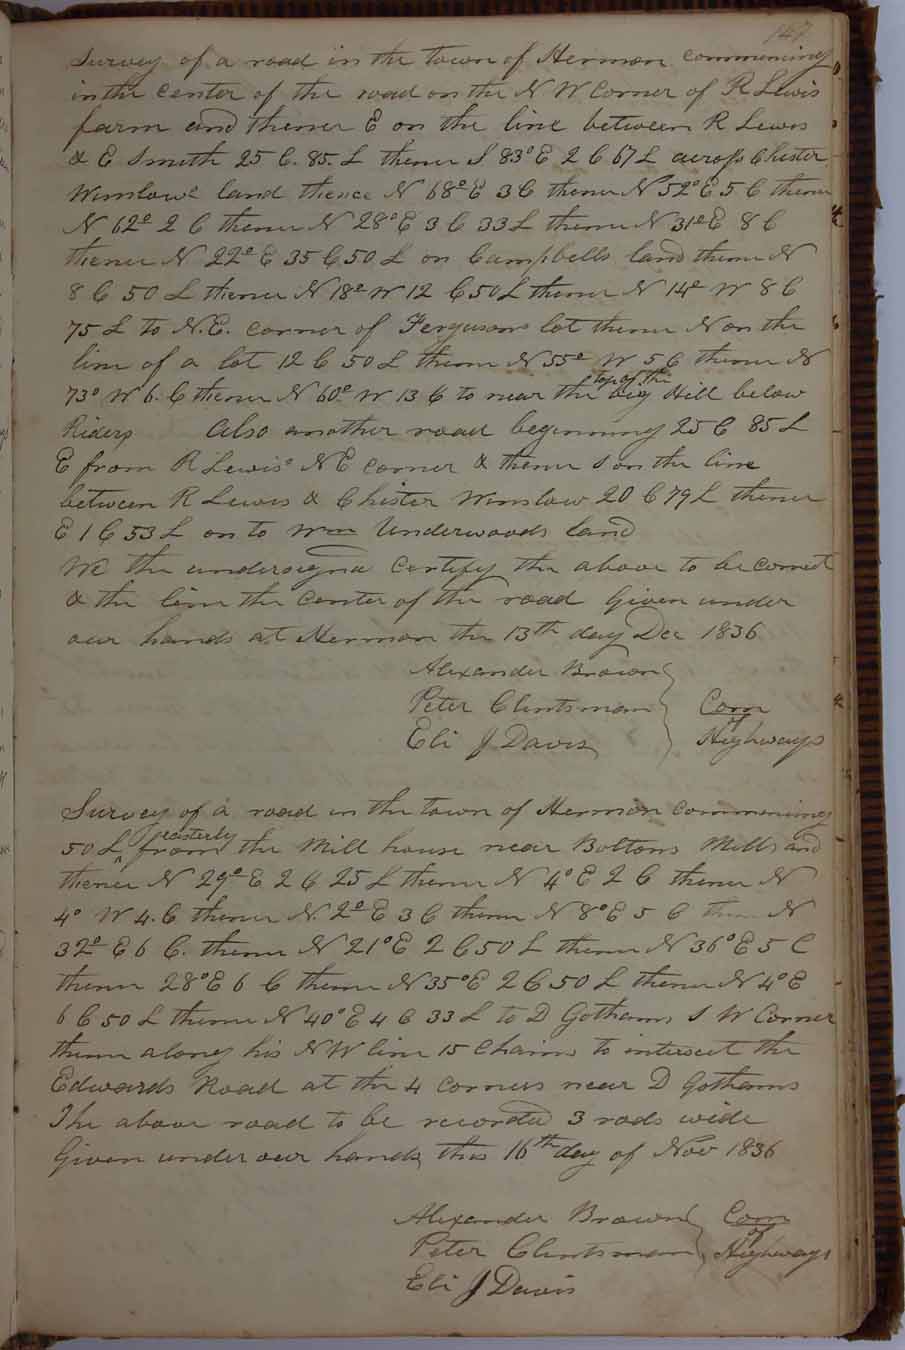 147
Survey of a road in the town of Hermon commencing
in the center of the road on the N W Corner of R Lewis
farm and thence E on the line between R Lewis
& E Smith 25 C. 85. L thence S 83° E 2 C 67 L across Chester
Winslows land thence N 68° E 3 C thence N 52° E 5 C thence
N 62° 2 C thence N 28° E 3 C 33 L thence N 31° E 8 C
thence N 22° E 35 C 50 L on Campbells land thence N
8 C 50 L thence N 18° W 12 C 50 L thence N 14° W 8 C
75 L to N.E. corner of Fergusons lot thence N on the
line of a lot 12 C 50 L thence N 55° W 5 C thence N
73° W 6. C thence N 60° W 13 C to near the top of the big Hill below
Riders Also another road beginning 25 C 85 L
E from R Lewis' N E corner & thence S on the line
between R Lewis & Chister Winslow 20 C 79 L thence
E 1 C 53 L on to Wm Underwoods land
We the undersigned certify the above to be correct
& the line the center of the road Given under
our hands at Hermon the 13th day Dec 1836
Alexander Brown
Peter Clintsman Com
of
Eli J Davis Highways
Survey of a road in the town of Hermon commencing
50 L easterly from the Mill house near Boltons Mills and
thence N 29° E 2 C 25 L thence N 4° E 2 C thence N
4° W 4. C thence N. 2° E 3 C thence N 8° E 5 C thence N
32° E 6 C. thence N 21° E 2 C 50 L thence N 36° E 5 C
thence 28° E 6 C thence N 35° E 2 C 50 L thence N 4° E
6 C 50 L thence N 40° E 4 C 33 L to D Gothams S W Corner
thence along his N W line 15 Chains to intersect the
Edwards Road at the 4 corners near D Gothams
The above road to be recorded 3 rods wide
Given under our hands this 16th day of Nov 1836
Alexander Brown Com
of
Peter Clintsman Highways
Eli J Davis